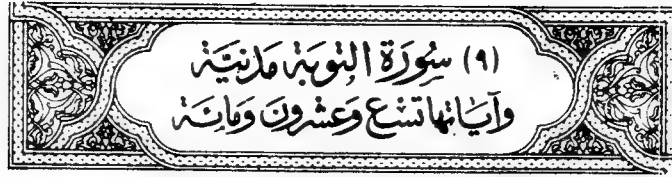 (٩) سُورَةُ التوبَة مَدَنيَّة
وآيَاتها تسْع وَعشرُونَ وَمائة